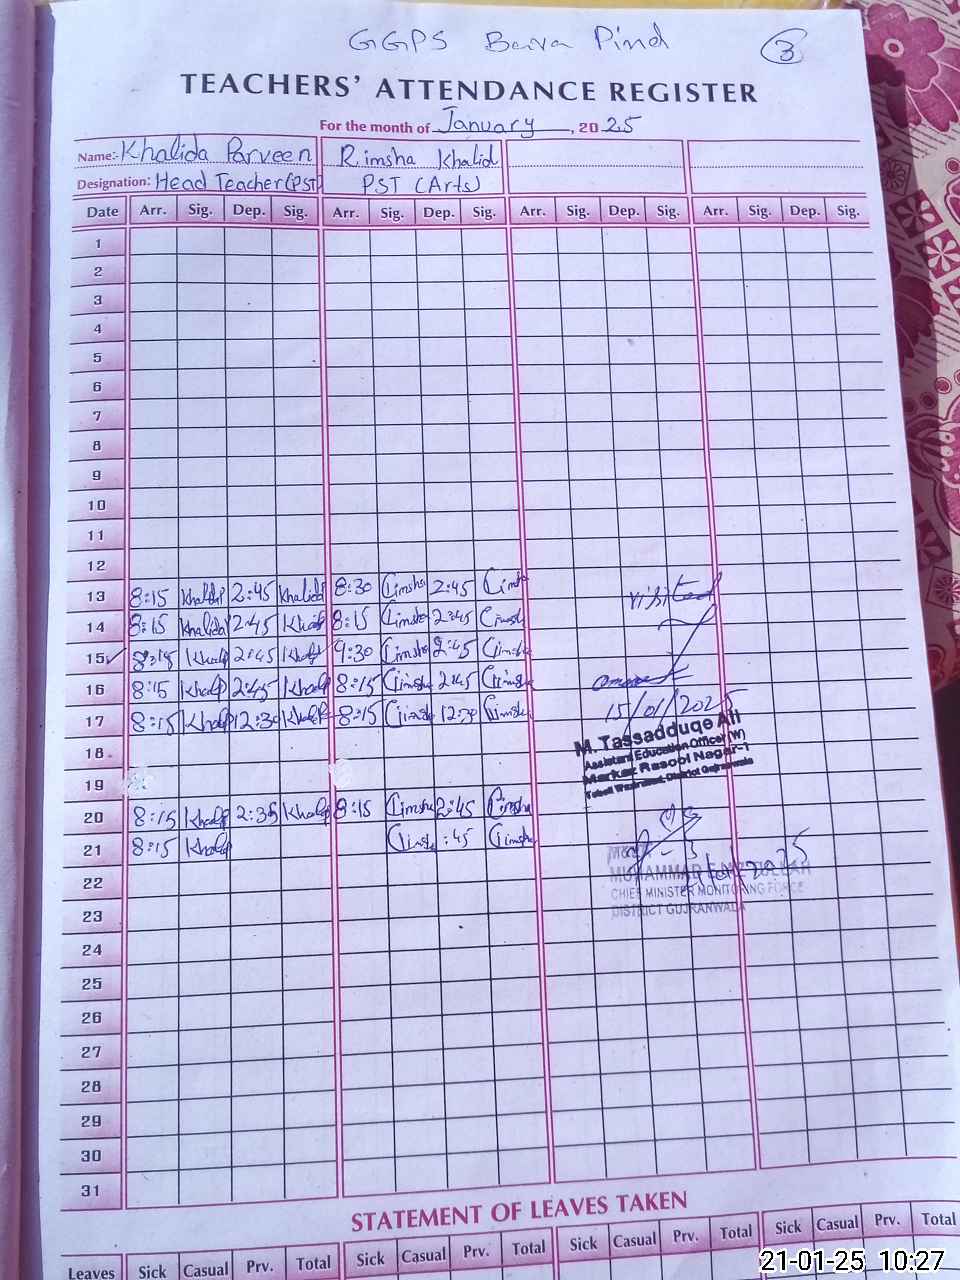 GGPS Bawa Pind 3
TEACHERS' ATTENDANCE REGISTER
For the month of January, 2025
Name:- Khalida Parveen Rimsha Khalid
Designation: Head Teacher (PST) PST (Arts)
Date Arr. Sig. Dep. Sig. Arr. Sig. Dep. Sig. Arr. Sig. Dep. Sig. Arr. Sig. Dep. Sig.
1
2
3
4
5
6
7
8
9
10
11
12
13 8:15 Khalida 2:45 Khalida 8:30 Rimsha 2:45 Rimsha visited
14 8:15 Khalida 2:45 Khalida 8:15 Rimsha 2:45 Rimsha
15 8:15 Khalida 2:45 Khalida 9:30 Rimsha 2:45 Rimsha
16 8:15 Khalida 2:45 Khalida 8:15 Rimsha 2:45 Rimsha
17 8:15 Khalida 12:30 Khalida 8:15 Rimsha 12:30 Rimsha 15/01/2025
M. Tassadduqe Ali
Assistant Education Officer (W)
Markaz Rasool Nagar-1
Tehsil Wazirabad, District Gujranwala
18
19
20 8:15 Khalida 2:35 Khalida 8:15 Rimsha 2:45 Rimsha
21 8:15 Khalida Rimsha :45 Rimsha
MUHAMMAD
CHIEF MINISTER MONITORING FORCE
DISTRICT GUJRANWALA
22
23
24
25
26
27
28
29
30
31
STATEMENT OF LEAVES TAKEN
Leaves Sick Casual Prv. Total Sick Casual Prv. Total Sick Casual Prv. Total Sick Casual Prv. Total
21-01-25 10:27